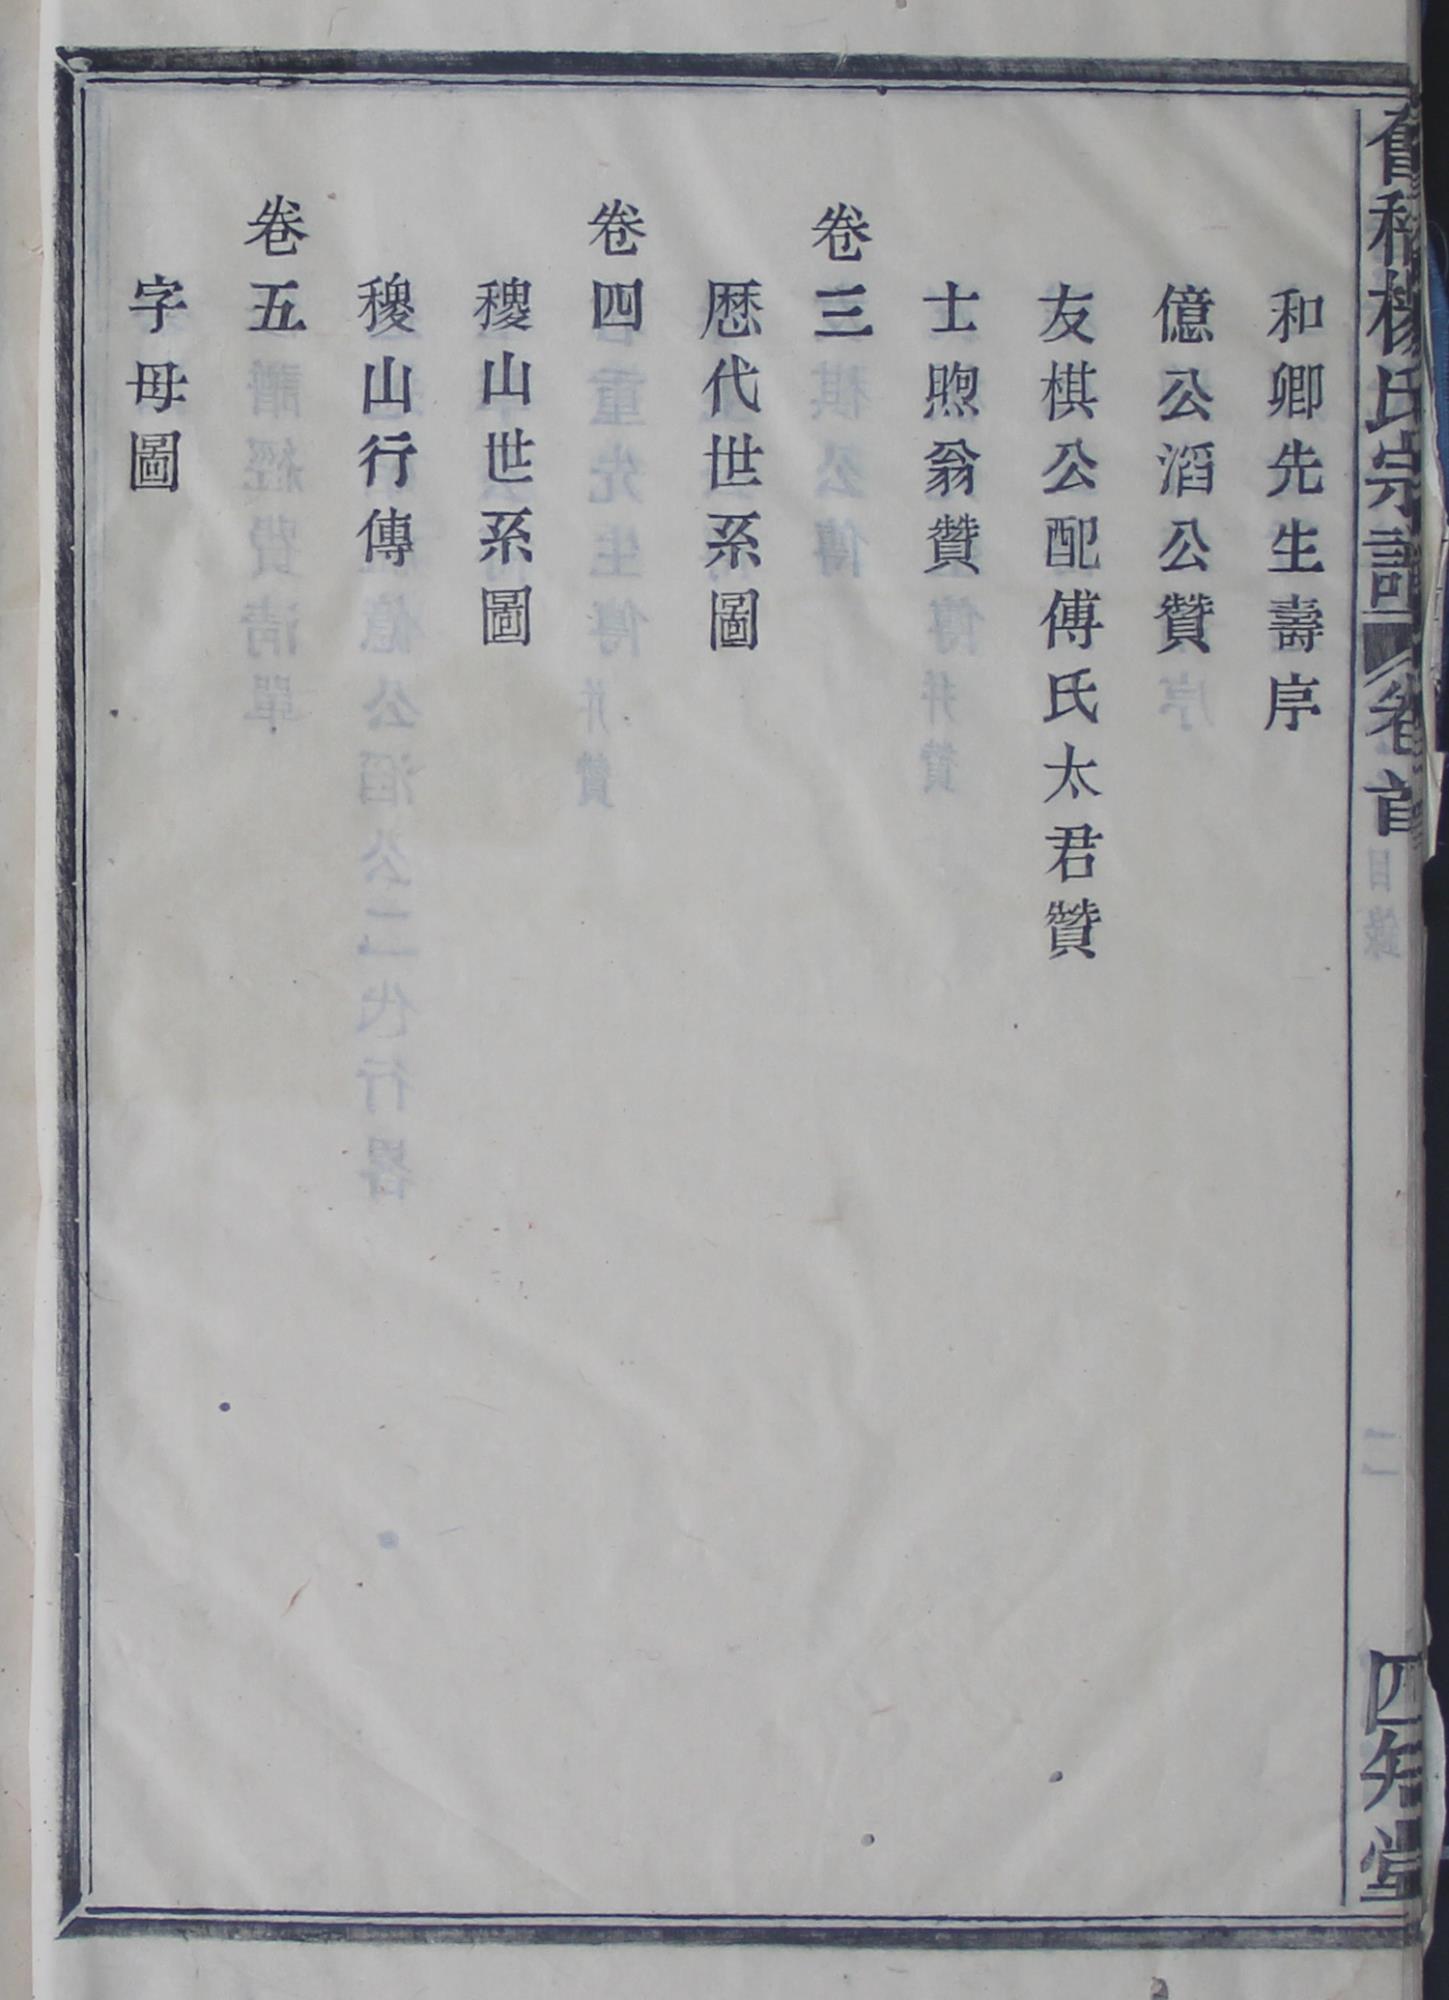 會稽楊氏宗譜 卷首 四知堂
和卿先生壽序
億公滔公贊
友棋公配傅氏太君贊
士煦翁贊
卷三
歷代世系圖
卷四
稷山世系圖
稷山行傳
卷五
字母圖